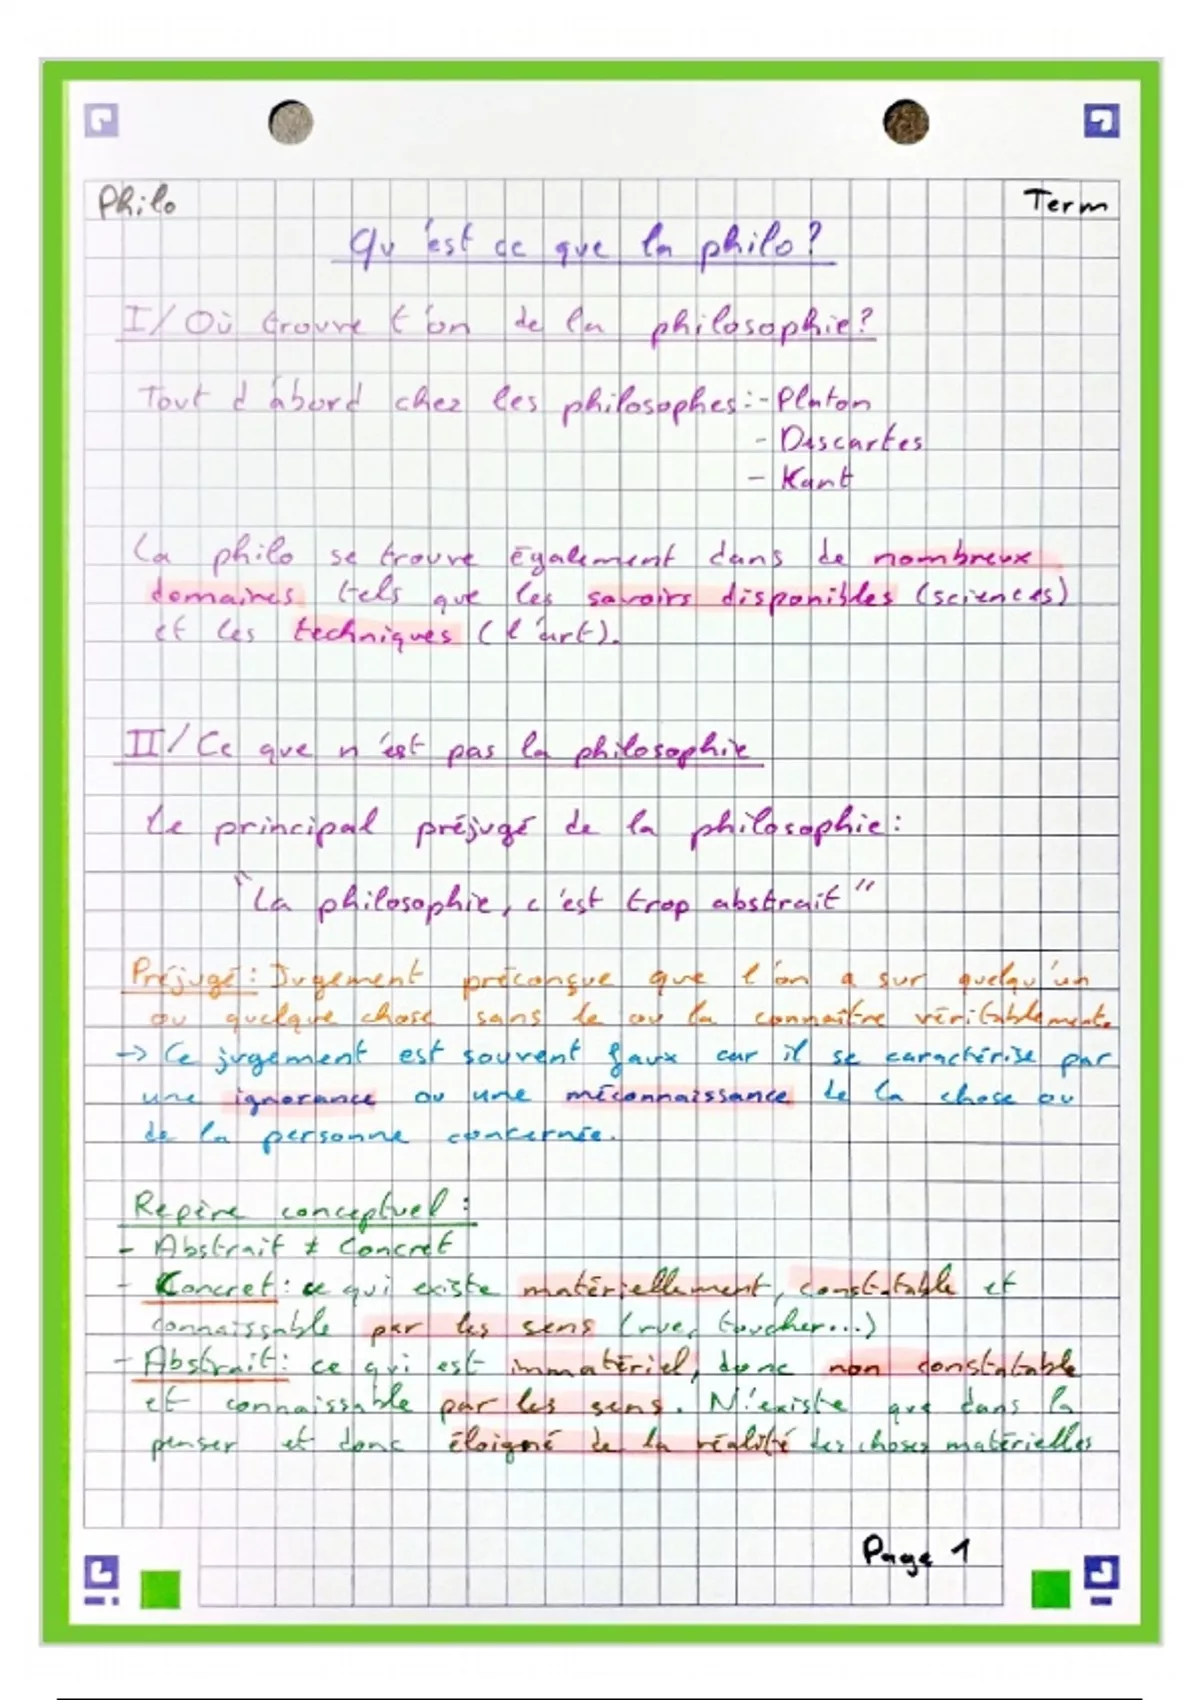 Philo
Term
Qu'est ce que la philo?
I/ Où trouve t'on de la philosophie?
Tout d'abord chez les philosophes: - Platon
- Descartes
- Kant
La philo se trouve également dans de nombreux
domaines tels que les savoirs disponibles (sciences)
et les techniques (l'art).
II/ Ce que n'est pas la philosophie
Le principal préjugé de la philosophie:
"La philosophie, c'est trop abstrait"
Préjugé: Jugement préconçue que l'on a sur quelqu'un
ou quelque chose sans le ou la connaître véritablement.
-> Ce jugement est souvent faux car il se caractérise par
une ignorance ou une méconnaissance de la chose ou
de la personne concernée.
Repère conceptuel:
- Abstrait ≠ Concret
- Concret: ce qui existe matériellement, constatable et
connaissable par les sens (vue, toucher...)
- Abstrait: ce qui est immatériel, donc non constatable
et connaissable par les sens. N'existe que dans la
penser et donc éloigné de la réalité des choses matérielles
Page 1